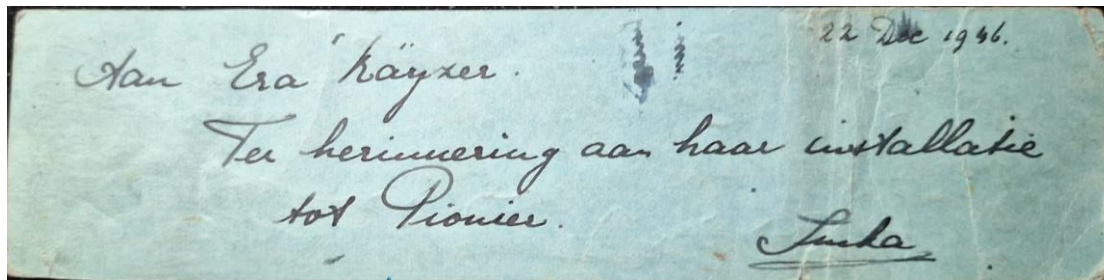 22 Dec 1946.
Aan Era Käyzer.
Ter herinnering aan haar installatie
tot Pionier.